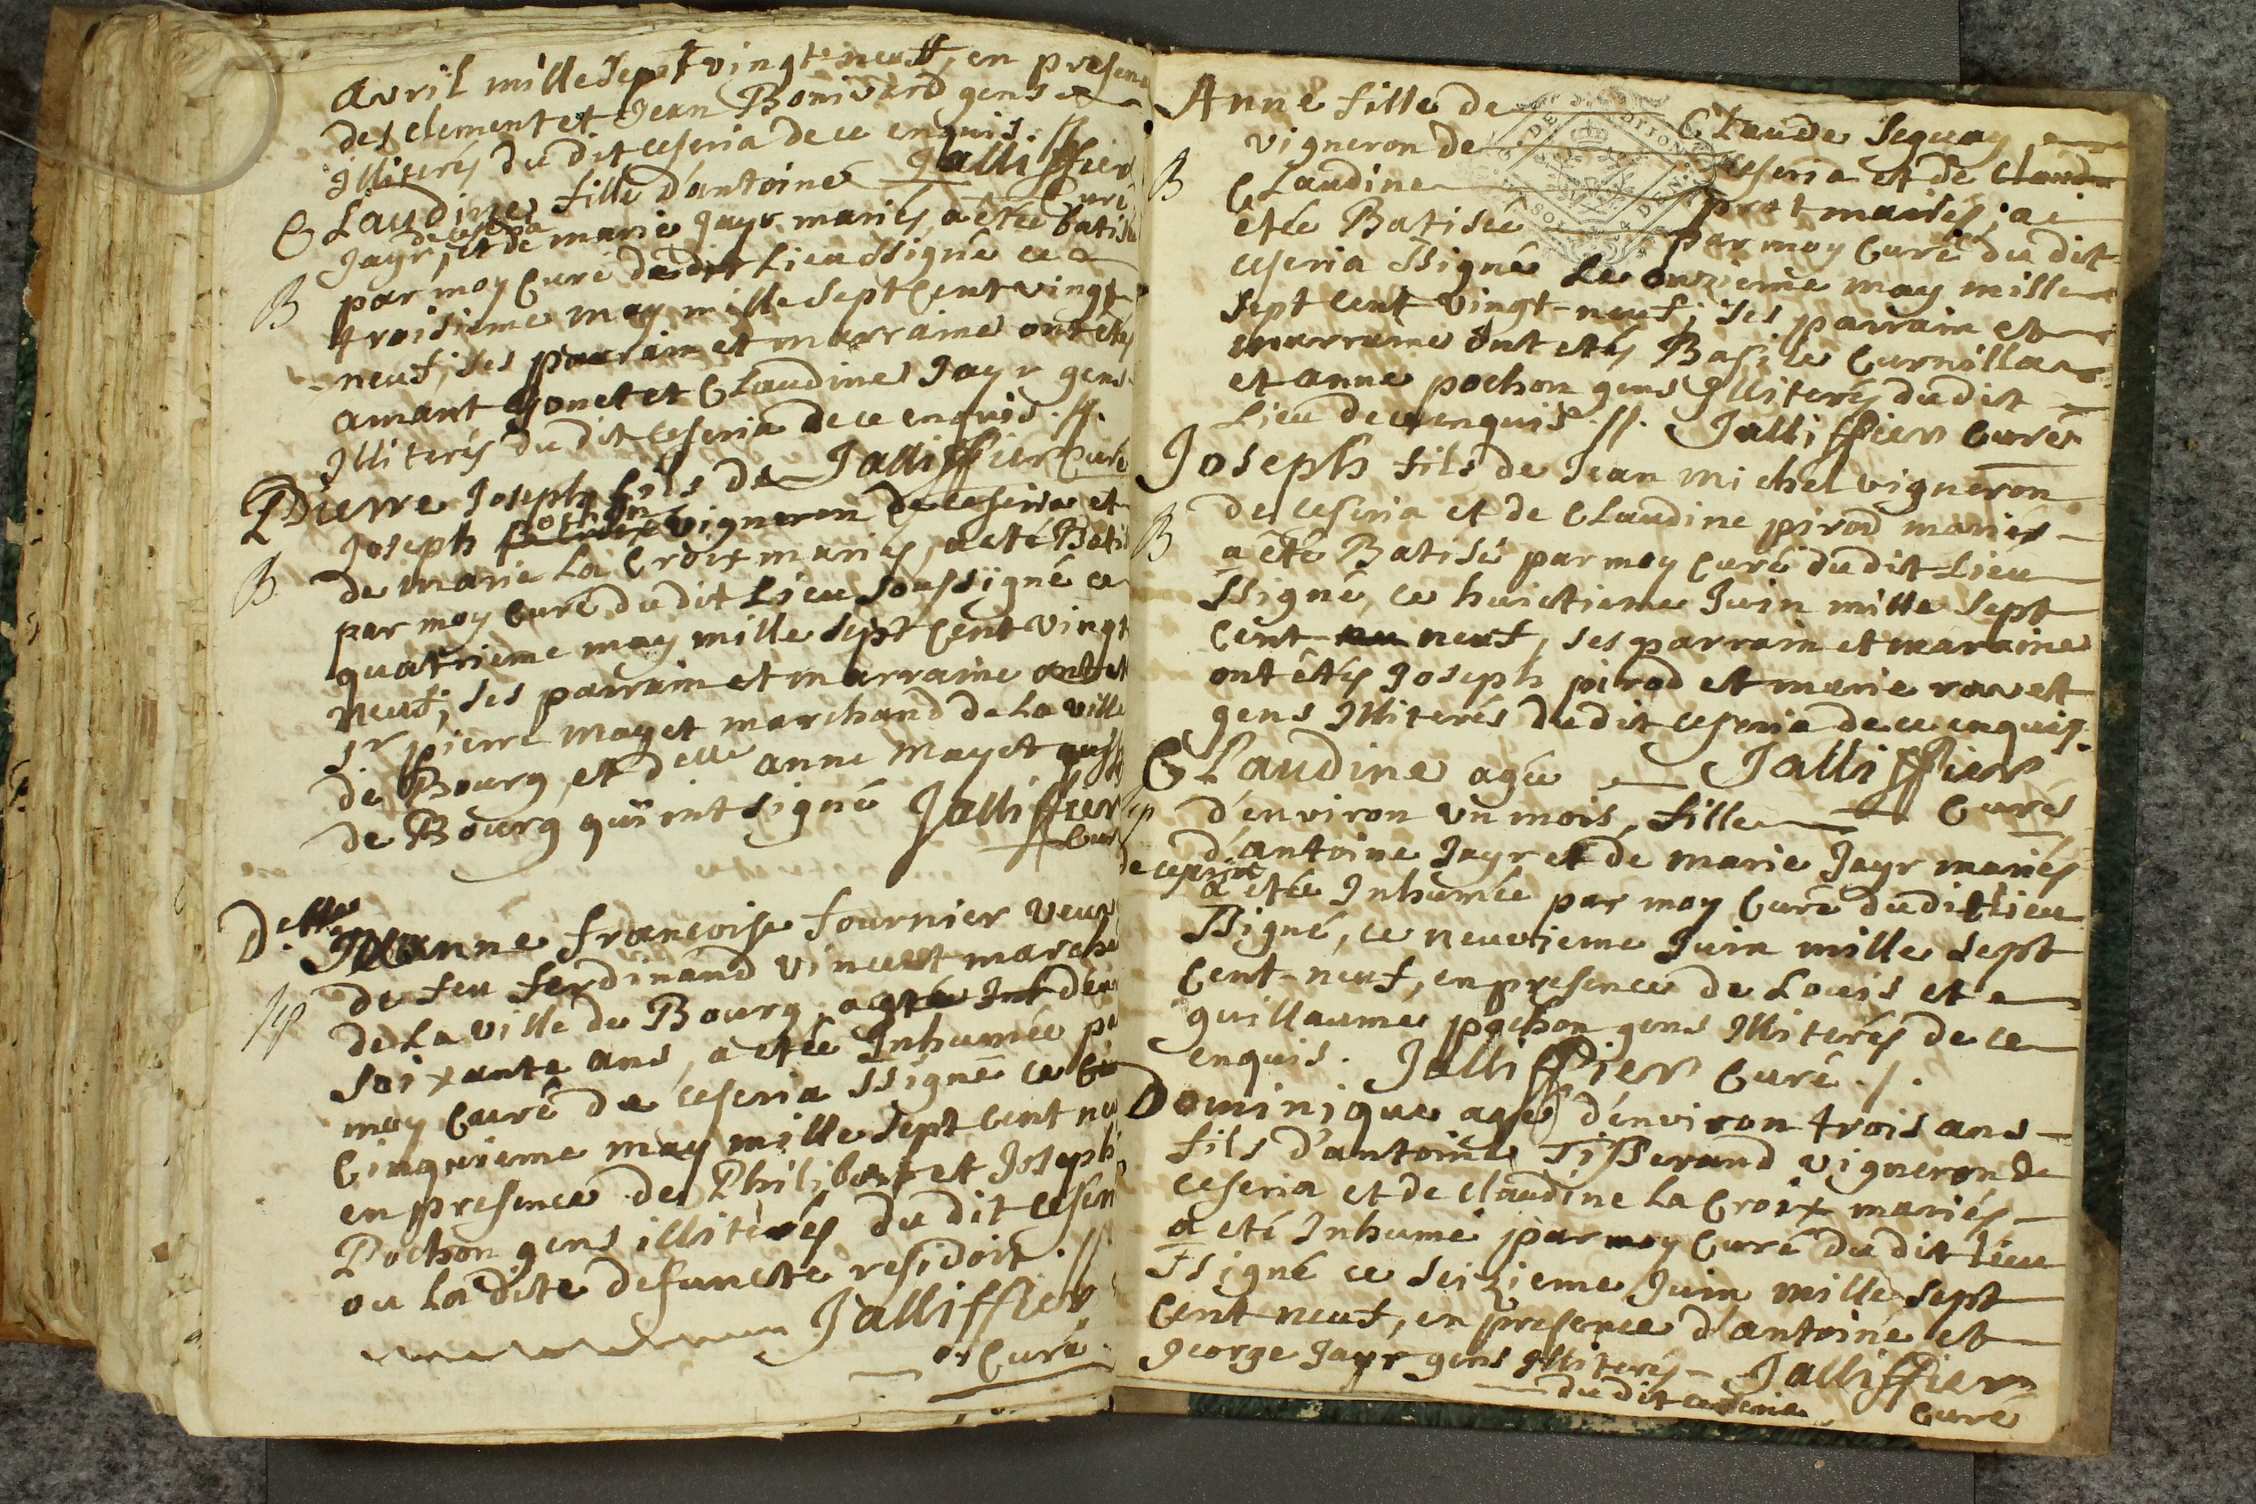 avril mille sept vingt neuf, en presen
de clement et Jean Bonivard gens
illiterés du dit ceseria de ce enquis. //.
Jalliffier
Curé
Claudine fille d'antoine
de ceseria
Jayr, et de marie Jayr mariés, a étée batisé
B
par moy Curé du dit Lieu ssigné ce
troisieme may mille sept Cent vingt
neuf, ses parrain et marraine ont étés
amant Gonet et Claudine Jayr gens
Illiterés du dit Ceseria de ce enquis. //.
Jalliffier Curé
Pierre Joseph fils de
pochon
Joseph vigneron de Ceseria et
B
de marie La Croix mariés, a eté Bati
par moy Curé du dit Lieu soussigné ce
quatrieme may mille sept Cent vingt
neuf, ses parrain et marraine ont et
Sr pierre mayet marchand de La ville
de Bourg, et delle anne Mayet auss
de Bourg qui ont signé Jalliffier
Cur
Delle Marianne francoise fournier veuv
de feu ferdinand vincent marcha
de La ville de Bourg, agée d'en
soixante ans, a etée Inhumée pa
moy Curé de ceseria ssigné ce
Cinquieme may mille sept Cent neu
en presence de Philibert et Joseph
Pochon gens illiterés du dit Ceseri
ou La dite defuncte residoit. //
Jalliffier
Curé
Anne fille de Claude Seguay
vigneron de ceseria et de
B
Claudine prat mariés, a
étée Batisée par moy Curé du dit
ceseria ssigné Le onzieme may mille
sept Cent vingt-neuf, ses parrain et
marraine ont etés Basile Curnilla
et anne pochon gens Illiterés du dit
Lieu de ce enquis. //. Jalliffier Curé
Joseph fils de Jean michel vigneron
de Ceseria et de Claudine pirod mariés
B
a été Batisé par moy Curé du dit Lieu
ssigné, ce huictieme Juin mille sept
Cent neuf, ses parrain et maraine
ont étés Joseph pirod et marie ravet
gens Illiterés du dit ceseria de ce enquis.
Claudine agée Jalliffier
d'environ un mois, fille Curé
d'antoine Jayr et de marie Jayr mariés
a etée Inhumée par moy Curé du dit Lieu
ssigné, ce neuvieme Juin mille sept
Cent-neuf, en presence de Louis et
guillaume pochon gens Illiterés de ce
enquis. Jalliffier Curé. /.
Dominique agé d'environ trois ans
fils d'antoine Tisserand vigneron de
ceseria et de claudine La Croix mariés
a eté Inhumé par moy Curé du dit Lieu
ssigné ce seizieme Juin mille sept
Cent neuf, en presence d'antoine et
george Jayr gens Illiterés Jalliffier
du dit ceseria Curé